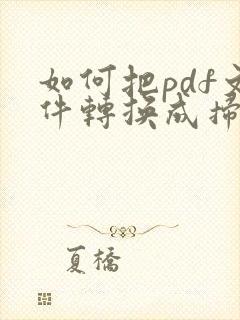 如何把pdf文
件轉換成掃
夏橋